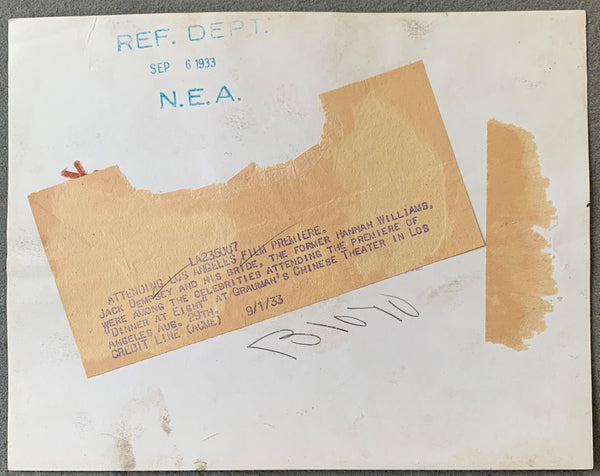 REF. DEPT.
SEP 6 1933
N.E.A.
LA236007
ATTENDING LOS ANGELES FILM PREMIERE.
JACK DEMPSEY AND HIS BRIDE, THE FORMER HANNAH WILLIAMS,
WERE AMONG THE CELEBRITIES ATTENDING THE PREMIERE OF
"DINNER AT EIGHT" AT GRAUMAN'S CHINESE THEATER IN LOS
ANGELES AUG. 29TH.
CREDIT LINE (ACME) 9/1/33